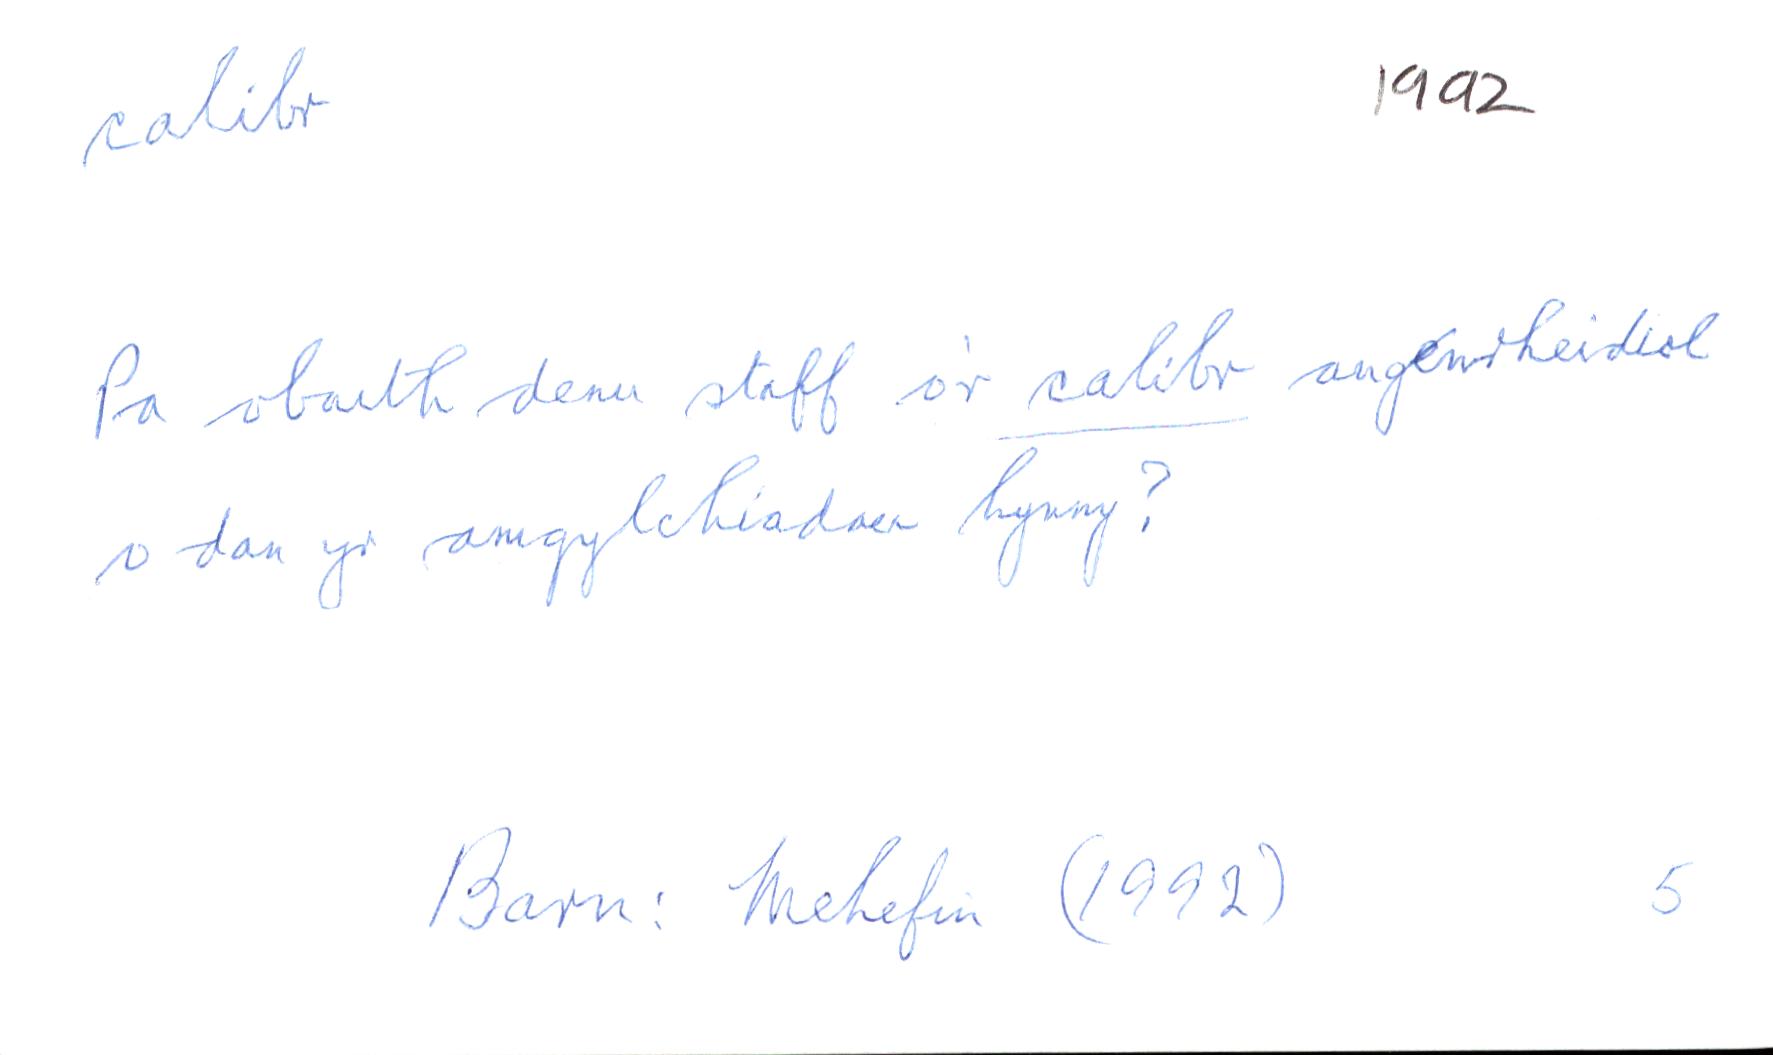 calibr 1992
Pa obaith denu staff o'r calibr angenrheidiol
o dan yr amgylchiadau hynny?
Barn: Mehefin (1992) 5